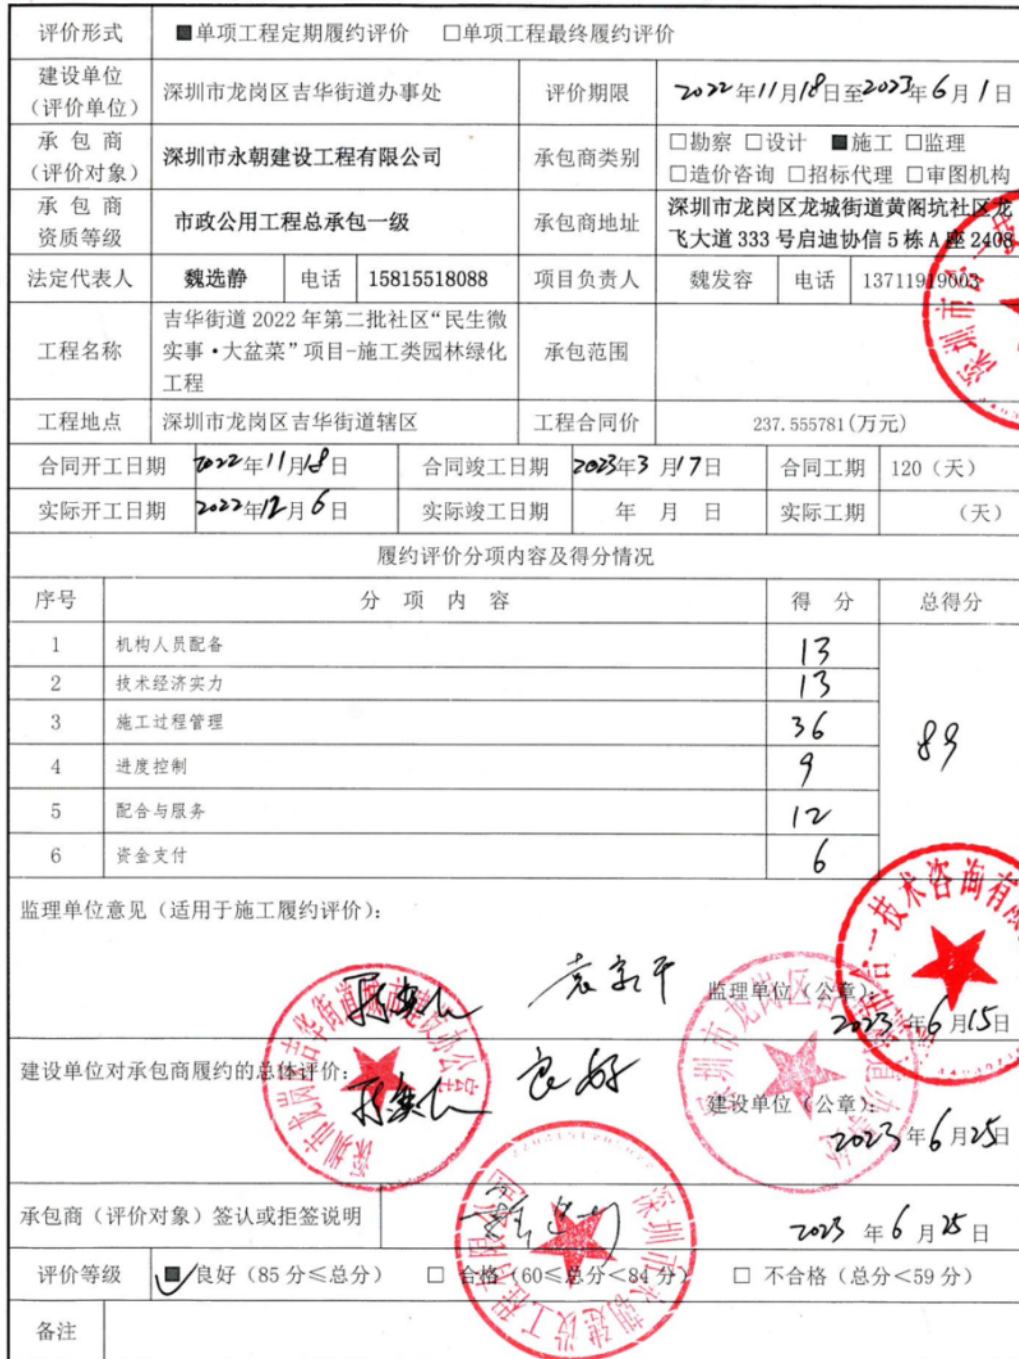 评价形式 ■单项工程定期履约评价 □单项工程最终履约评价
建设单位（评价单位） 深圳市龙岗区吉华街道办事处 评价期限 2022年11月18日至2023年6月1日
承包商（评价对象） 深圳市永朝建设工程有限公司 承包商类别 □勘察 □设计 ■施工 □监理
□造价咨询 □招标代理 □审图机构
承包商资质等级 市政公用工程总承包一级 承包商地址 深圳市龙岗区龙城街道黄阁坑社区龙
飞大道333号启迪协信5栋A座2408
法定代表人 魏选静 电话 15815518088 项目负责人 魏发容 电话 13711919003
工程名称 吉华街道2022年第二批社区“民生微
实事·大盆菜”项目-施工类园林绿化
工程 承包范围
工程地点 深圳市龙岗区吉华街道辖区 工程合同价 237.555781(万元)
合同开工日期 2022年11月18日 合同竣工日期 2023年3月17日 合同工期 120（天）
实际开工日期 2022年12月6日 实际竣工日期 年 月 日 实际工期 （天）
履约评价分项内容及得分情况
序号 分项内容 得分 总得分
1 机构人员配备 13
2 技术经济实力 13
3 施工过程管理 36
89
4 进度控制 9
5 配合与服务 12
6 资金支付 6
监理单位意见（适用于施工履约评价）：
监理单位（公章）：
2023年6月15日
建设单位对承包商履约的总体评价： 良好
建设单位（公章）：
2023年6月25日
承包商（评价对象）签认或拒签说明 2023年6月25日
评价等级 ■良好（85分≤总分） □ 合格（60≤总分<84分） □ 不合格（总分<59分）
备注